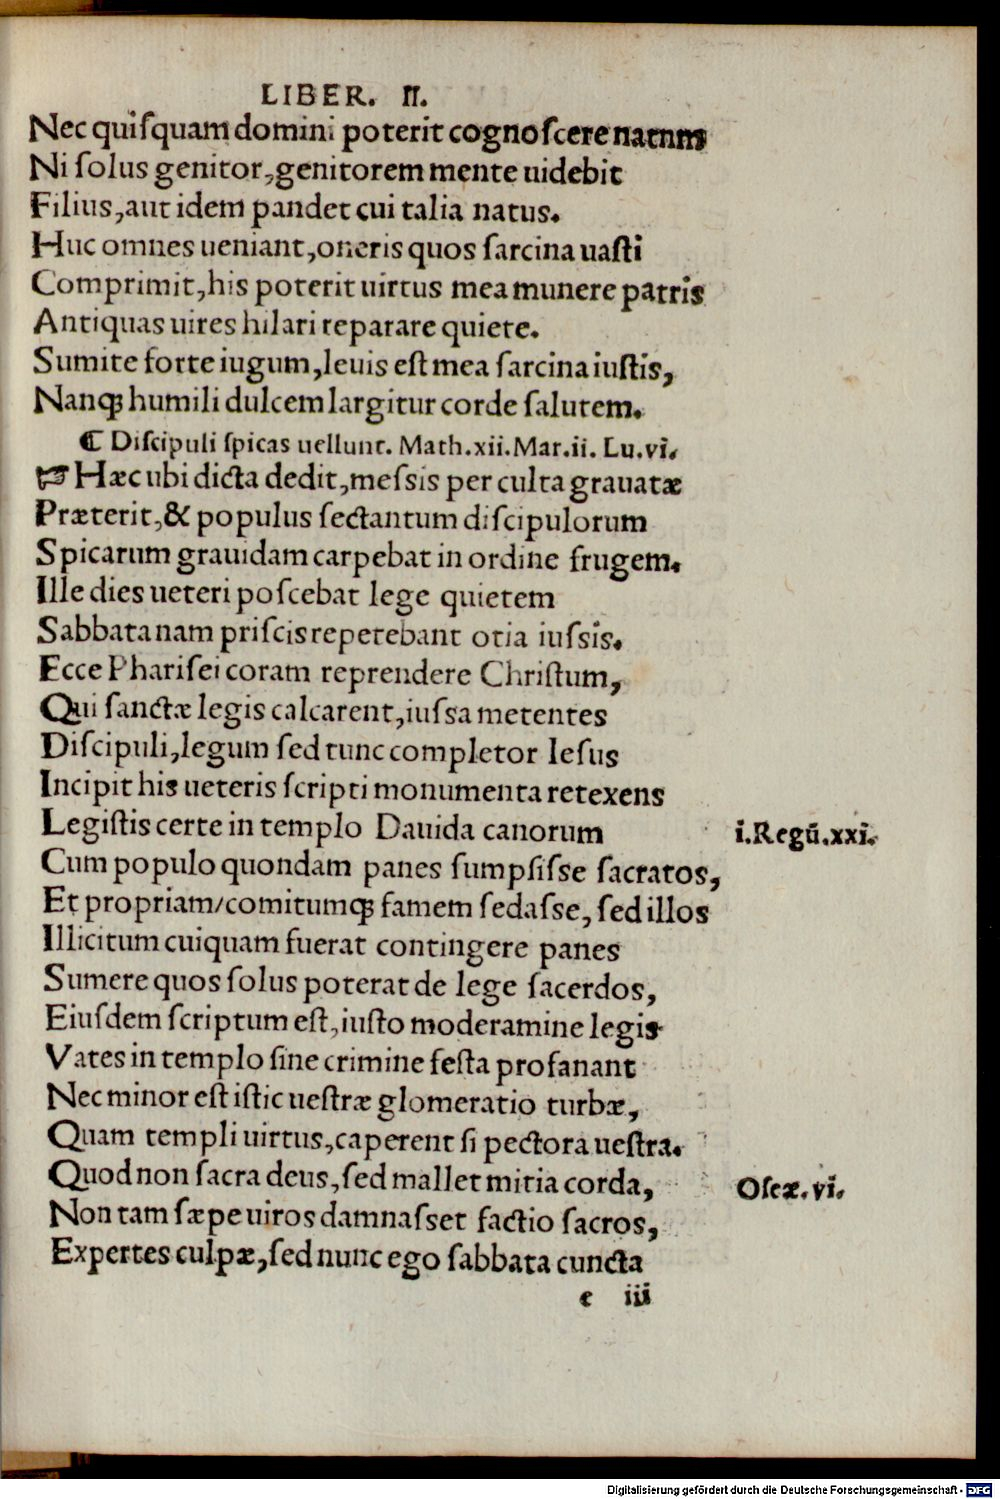 LIBER. II.
Nec quiſquam domini poterit cognoſcere natum
Ni ſolus genitor, genitorem mente uidebit
Filius, aut idem pandet cui talia natus.
Huc omnes ueniant, oneris quos ſarcina uaſti
Comprimit, his poterit uirtus mea munere patris
Antiquas uires hilari reparare quiete.
Sumite forte iugum, leuis eſt mea ſarcina iuſtis,
Nanqꝫ humili dulcem largitur corde ſalutem.
⁋ Diſcipuli ſpicas uellunt. Math.xii.Mar.ii. Lu.vi.
☞ Hæc ubi dicta dedit, meſsis per culta grauatæ
Præterit, & populus ſectantum diſcipulorum
Spicarum grauidam carpebat in ordine frugem.
Ille dies ueteri poſcebat lege quietem
Sabbata nam priſcis repetebant otia iuſsis.
Ecce Phariſei coram reprendere Chriſtum,
Qui ſanctæ legis calcarent, iuſsa metentes
Diſcipuli, legum ſed tunc completor Ieſus
Incipit his ueteris ſcripti monumenta retexens
Legiſtis certe in templo Dauida canorum
i.Regū.xxi.
Cum populo quondam panes ſumpſiſse ſacratos,
Et propriam/comitumqꝫ famem ſedaſse, ſed illos
Illicitum cuiquam fuerat contingere panes
Sumere quos ſolus poterat de lege ſacerdos,
Eiuſdem ſcriptum eſt, iuſto moderamine legis
Vates in templo ſine crimine feſta profanant
Nec minor eſt iſtic ueſtræ glomeratio turbæ,
Quam templi uirtus, caperent ſi pectora ueſtra.
Quod non ſacra deus, ſed mallet mitia corda,
Oſeæ.vi.
Non tam ſæpe uiros damnaſset factio ſacros,
Expertes culpæ, ſed nunc ego ſabbata cuncta
e iii
Digitalisierung gefördert durch die Deutsche Forschungsgemeinschaft - DFG